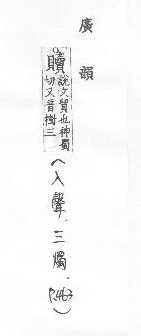 廣韻
贖說文質也神蜀
切又音樹三
(入聲.三燭.
P.463)